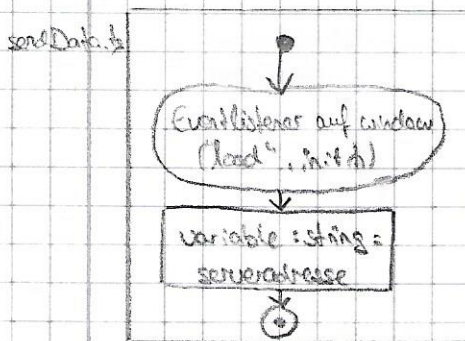 sendData.ts
Eventlistener auf window
("load", init fn)
variable : string =
serveradresse